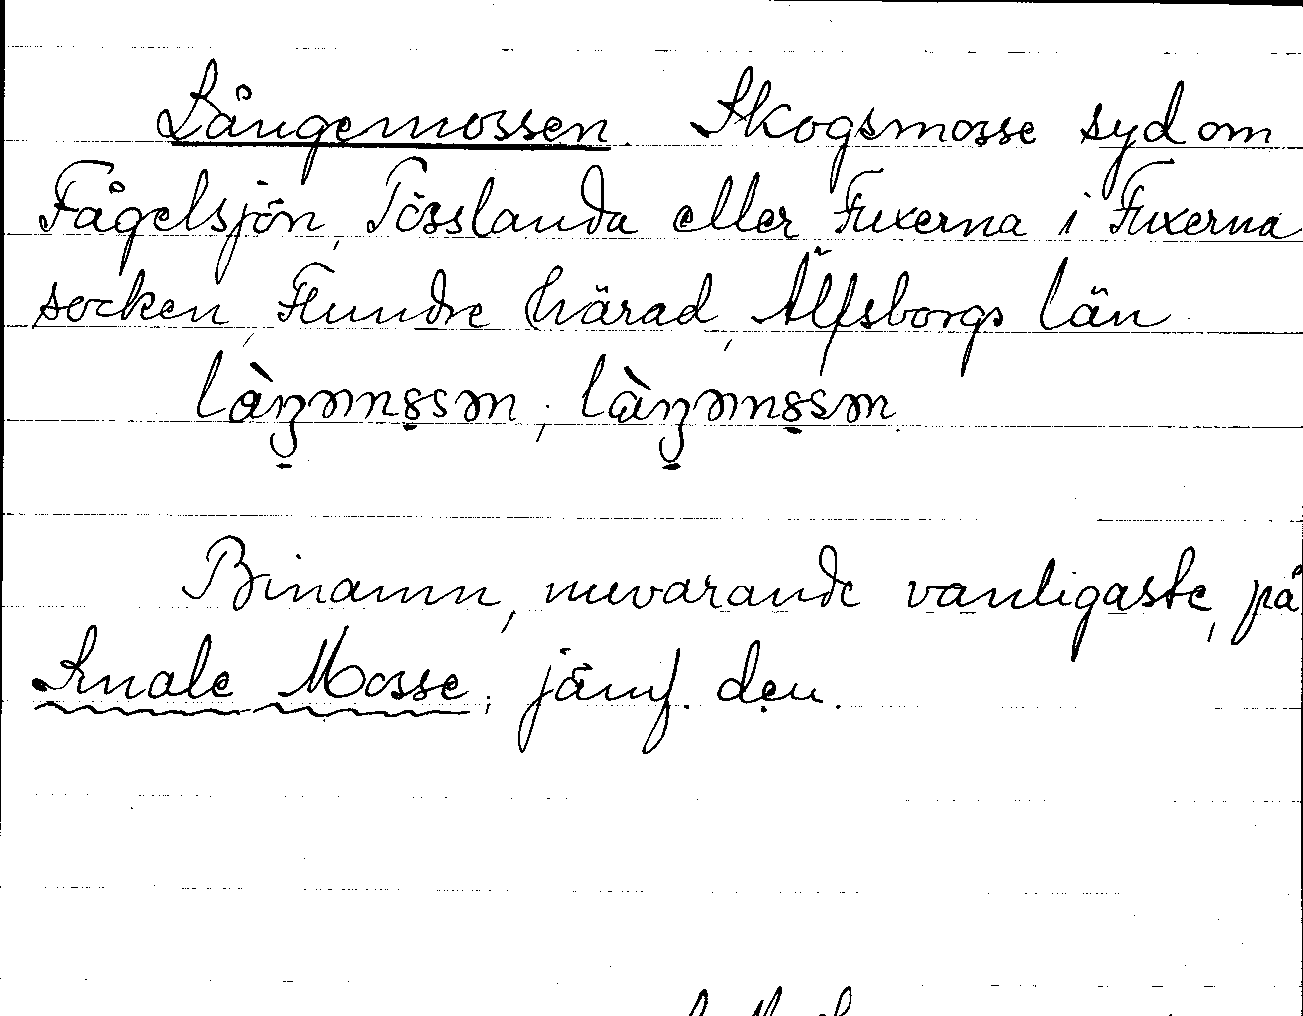 Långemossen. Skogsmosse syd om
Fågelsjön, Tösslanda eller Fuxerna i Fuxerna
socken, Flundre härad, Älfsborgs län.
Binamn, nuvarande vanligaste, på
Smale Mosse; jämf. den.